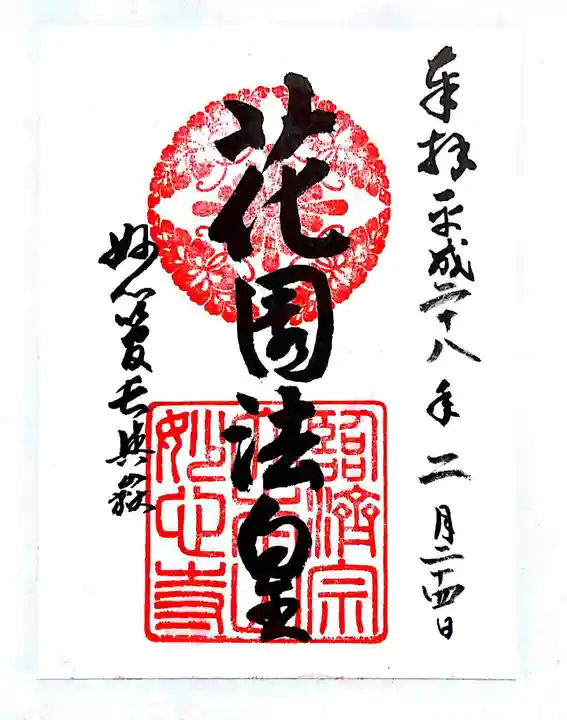 奉拝 平成二十八年 二月二十四日
花園法皇
臨済宗
妙心寺